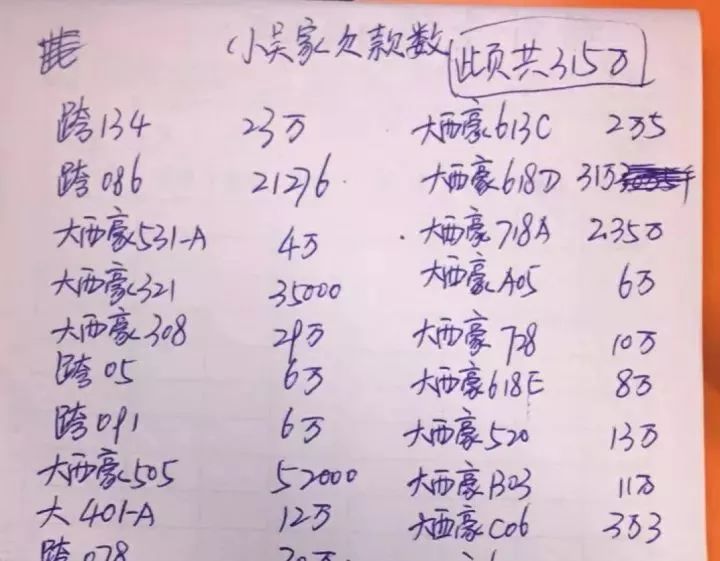 小吴家欠款数 此页共315万
跨134 23万 大西豪613C 2万5
跨086 21276 大西豪618D 31万2
大西豪531-A 4万 大西豪718A 2.35万
大西豪321 35000 大西豪A05 6万
大西豪308 29万 大西豪728 10万
跨05 6万 大西豪618E 8万
跨091 6万 大西豪520 13万
大西豪505 52000 大西豪B03 11万
大401-A 12万 大西豪C06 3万3
跨078